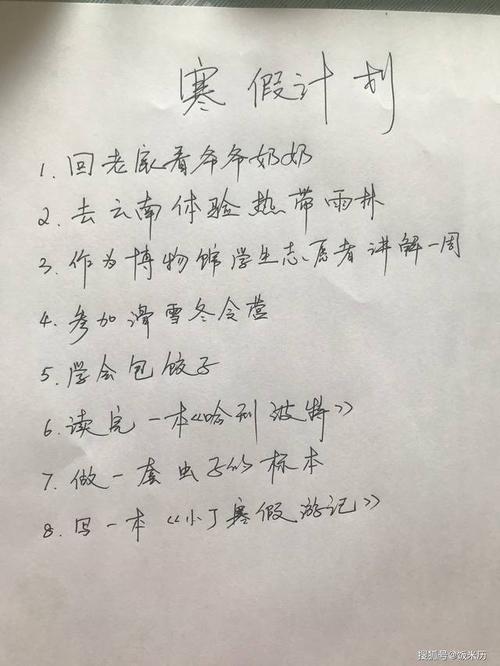 寒假计划
1. 回老家看爷爷奶奶
2. 去云南体验热带雨林
3. 作为博物馆学生志愿者讲解一周
4. 参加滑雪冬令营
5. 学会包饺子
6. 读完一本《哈利波特》
7. 做一套虫子的标本
8. 写一本《小丁寒假游记》
搜狐号@饭米历